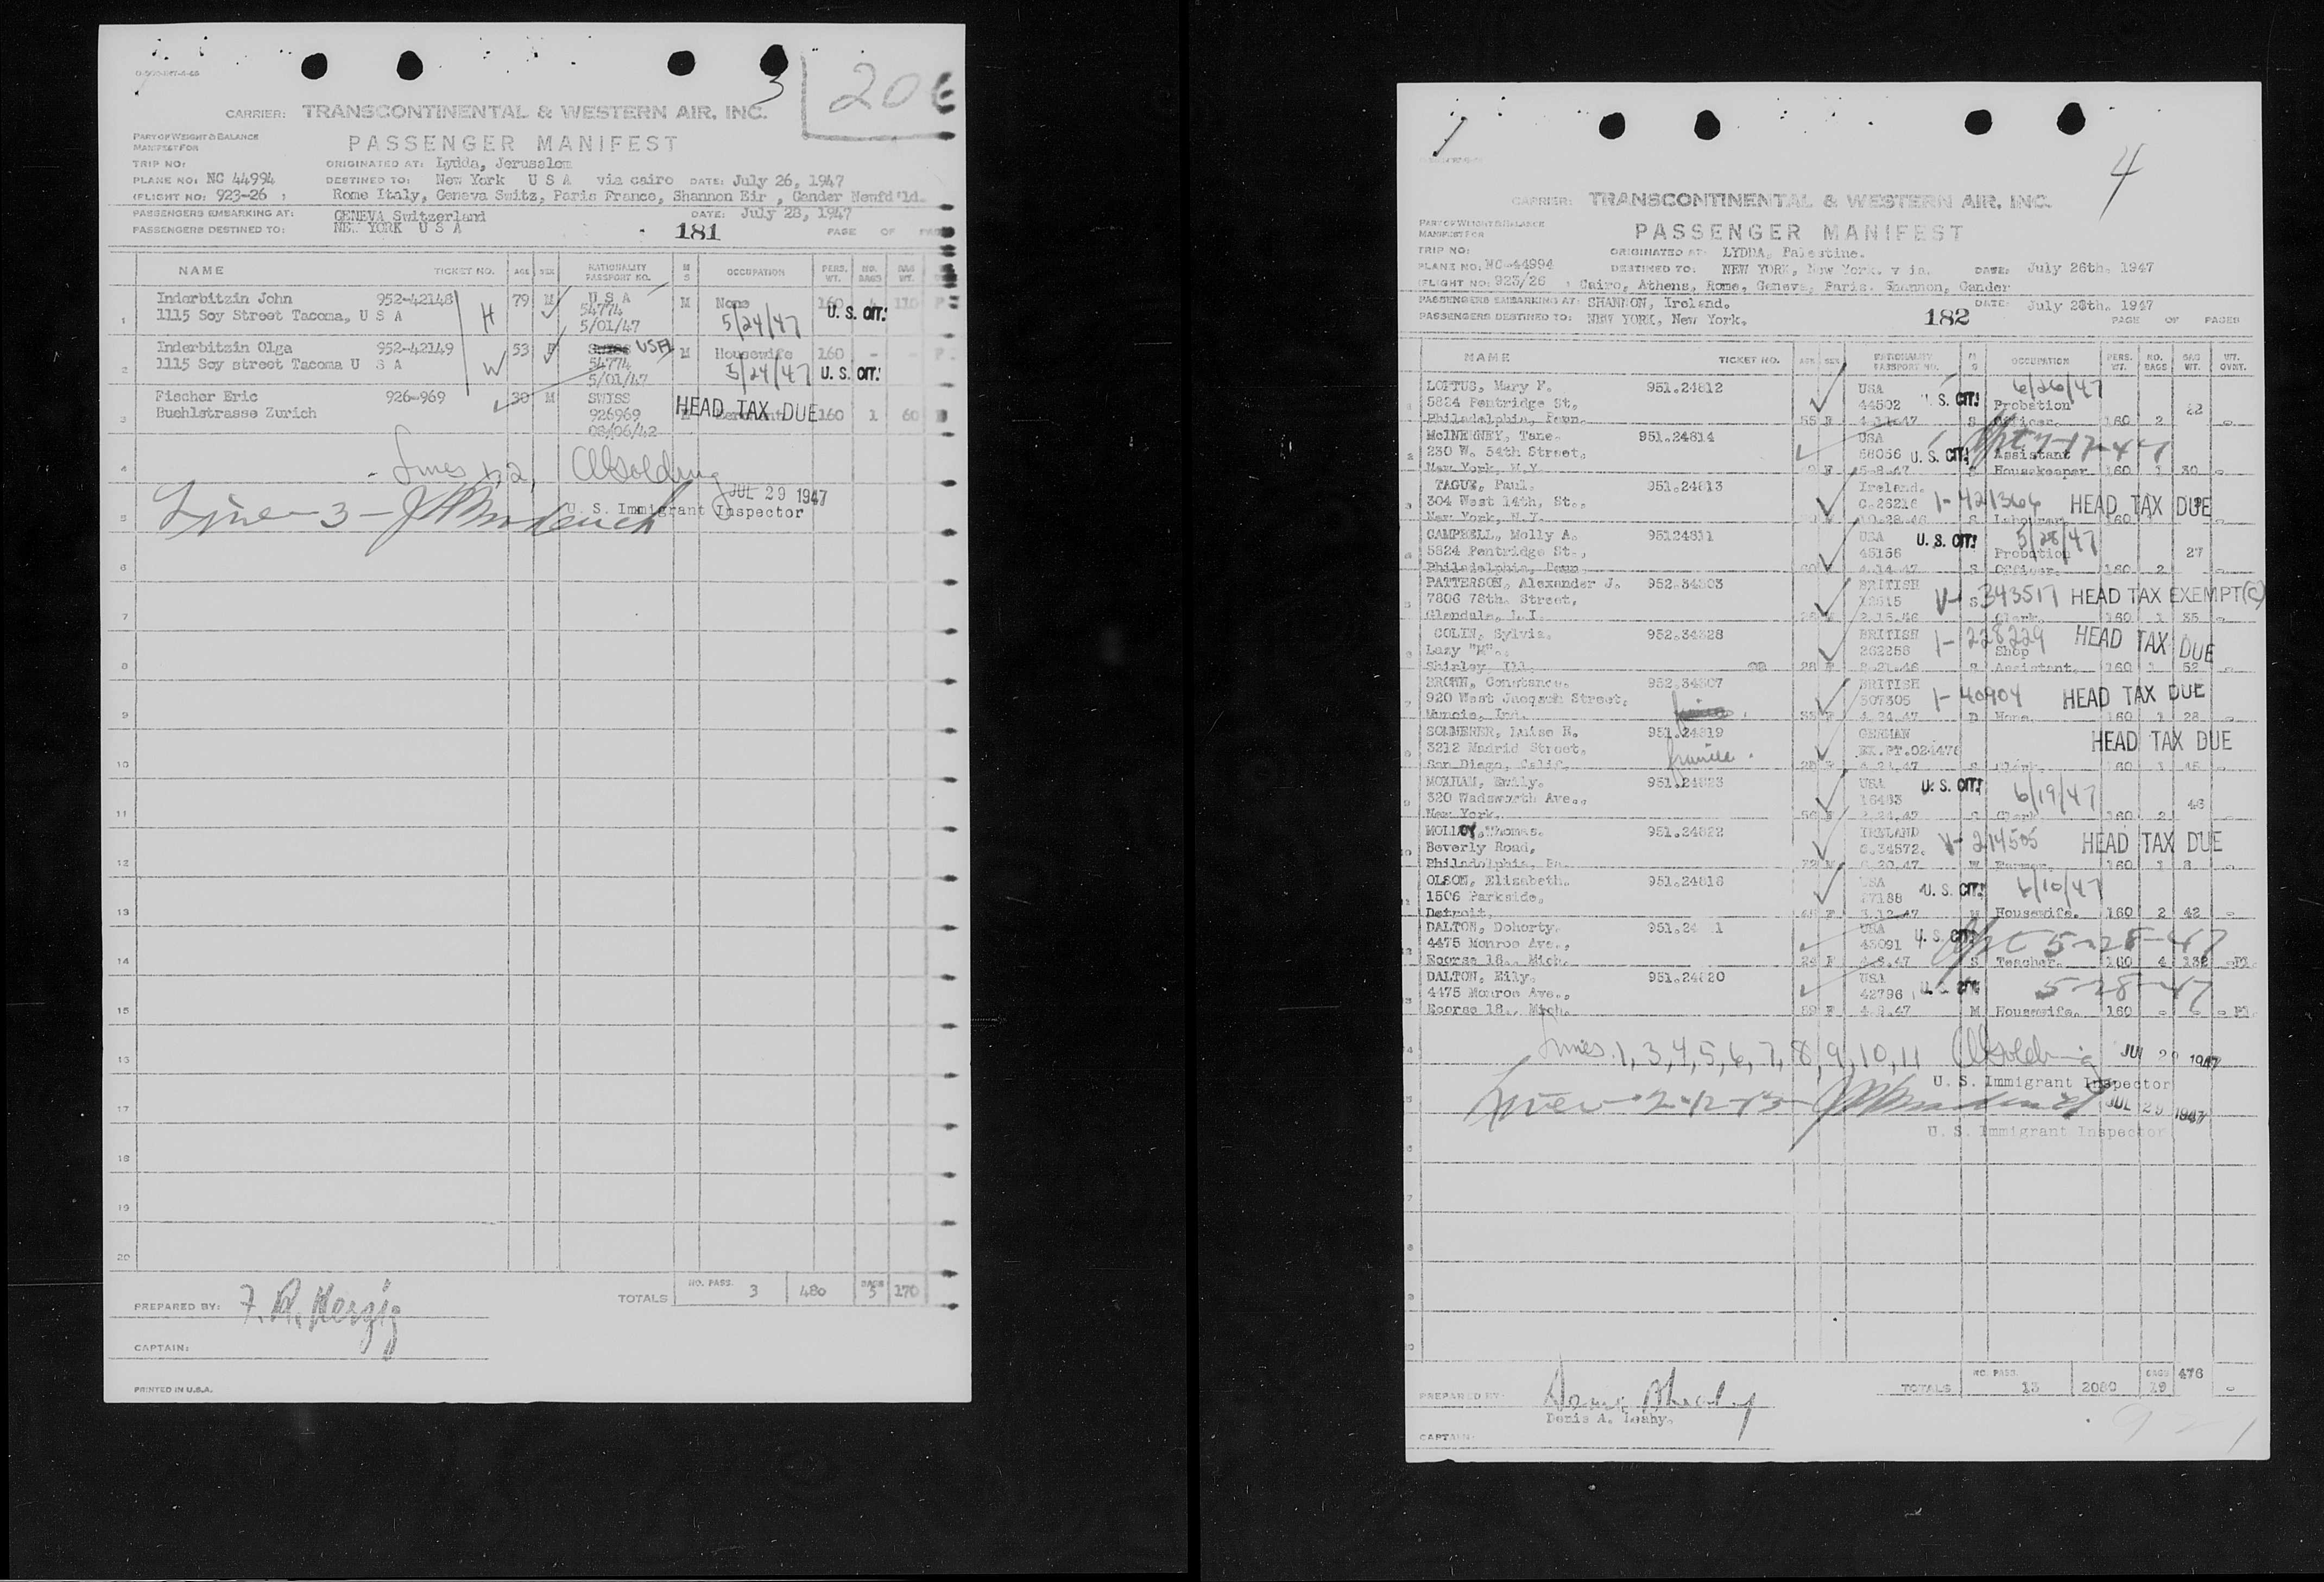 3
20
CARRIER: TRANSCONTINENTAL & WESTERN AIR, INC.
PART OF WEIGHT & BALANCE
MANIFEST FOR
PASSENGER MANIFEST
TRIP NO:
ORIGINATED AT: Lydda, Jerusalem
PLANE NO: NC 44994
DESTINED TO: New York U S A via cairo DATE: July 26, 1947
(FLIGHT NO: 923-26 )
Rome Italy, Geneva Switz, Paris France, Shannon Eir , Gander Newfd'ld.
PASSENGERS EMBARKING AT: GENEVA Switzerland DATE: July 28, 1947
PASSENGERS DESTINED TO: NEW YORK U S A 181 PAGE OF
NAME TICKET NO. AGE SEX NATIONALITY PASSPORT NO. M S OCCUPATION PERS. WT. NO. BAGS BAG WT.
1 Inderbitzin John 952-42148 H 79 M U S A M None 160 4 110
1115 Soy Street Tacoma, U S A 54774 U. S. CIT.
5/01/47 5/24/47
2 Inderbitzin Olga 952-42149 W 53 F USA M Housewife 160 - -
1115 Soy street Tacoma U S A 54774 5/24/47 U. S. CIT.
5/01/47
3 Fischer Eric 926-969 30 M SWISS HEAD TAX DUE
Buehlstrasse Zurich 926969 160 1 60
08/06/42
4
Lines 1, 2,
JUL 29 1947
5
Line - 3 -
U. S. Immigrant Inspector
6
7
8
9
10
11
12
13
14
15
13
17
18
19
20
TOTALS NO. PASS. 3 480 BAGS 5 170
PREPARED BY: F. R. Herzig
CAPTAIN:
PRINTED IN U.S.A.
4
CARRIER: TRANSCONTINENTAL & WESTERN AIR, INC.
PART OF WEIGHT & BALANCE
MANIFEST FOR
PASSENGER MANIFEST
TRIP NO:
ORIGINATED AT: LYDDA, Palestine.
PLANE NO: NC-44994
DESTINED TO: NEW YORK, New York. via. DATE: July 26th. 1947
(FLIGHT NO: 923/26 , Cairo, Athens, Rome, Geneva, Paris. Shannon, Gander
PASSENGERS EMBARKING AT: SHANNON, Ireland. DATE: July 28th. 1947
PASSENGERS DESTINED TO: NEW YORK, New York. 182 PAGE OF PAGES
NAME TICKET NO. AGE SEX NATIONALITY PASSPORT NO. M S OCCUPATION PERS. WT. NO. BAGS BAG WT. WT. OVNT.
LOFTUS, Mary F. 951.24812 USA 6/26/47
5824 Pentridge St. 44502 U. S. CIT! Probation 22
Philadelphia, Penn. 55 F 4.11.47 S Officer. 160 2
McINERNEY, Tane. 951.24814 USA
230 W. 54th Street. 68056 U. S. CIT! Assistant
New York, N.Y. F 5.8.47 S Housekeeper 160 1 30
TAGUE, Paul. 951.24813 Ireland.
304 West 14th, St., 1-421366 HEAD TAX DUE
New York, N.Y. 10.28.46 S Labourer 160
CAMPBELL, Molly A. 95124811 USA U. S. CIT! 5/28/47
5824 Pentridge St., 45156 Probation 27
Philadelphia, Penn 4.14.47 S Officer. 160 2
PATTERSON, Alexander J. 952.34303 BRITISH
7806 78th. Street, V-343517 HEAD TAX EXEMPT(C)
Glendale, L.I. 2.15.46 S Clerk. 160 1 35
COLIN, Sylvia. 952.34328 BRITISH 1-228229 HEAD TAX DUE
Lazy "M". 262258 Shop
Shirley Ill. 28 F 8.21.46 S Assistant. 160 1 52
BROWN, Constance. 952.34307 BRITISH
920 West Jacqson Street. 507305 1-40904 HEAD TAX DUE
Muncie, Ind. 55 F 4.24.47 D None. 160 1 28
SOMMERER, Luise R. 951.24819 GERMAN HEAD TAX DUE
3212 Madrid Street.
San Diego, Calif. 4.21.47 S Clerk. 160 1 45
MOXHAM, Emily. 951.24823 USA U. S. CIT!
320 Wadsworth Ave., 16483 6/19/47 46
New York. 56 F 2.24.47 S Clerk 160 2
MOLLOY, Thomas. 951.24822 IRELAND
Beverly Road, C.34572. V-214505 HEAD TAX DUE
Philadelphia, Pa. 72 M 6.20.47 W Farmer. 160 1 8
OLSON, Elizabeth. 951.24816 USA
1506 Parkside. 27188 U. S. CIT! 6/10/47
Detroit. F 3.12.47 M Housewife. 160 2 42
DALTON, Dohorty. USA
4475 Monroe Ave., 43091 U. S. CIT! 5-28-47
Ecorse 18., Mich. 24 F 4.8.47 S Teacher. 160 4 132
DALTON, Eily. 951.24820 USA
4475 Monroe Ave., 42796 5-28-47
Ecorse 18., Mich. 59 F 4.8.47 M Housewife. 160
Lines 1, 3, 4, 5, 6, 7, 8, 9, 10, 11 JUL 29 1947
U. S. Immigrant Inspector
Lines - 2-12-13 JUL 29 1947
U. S. Immigrant Inspector
TOTALS NO. PASS. 13 2080 BAGS 19 476
PREPARED BY:
Denis A. Leahy.
CAPTAIN: